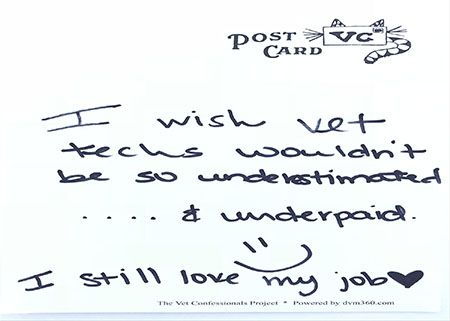 POST CARD VC
I wish vet
techs wouldn't
be so understimated
.... & underpaid.
I still love my job♥
The Vet Confessionals Project * Powered by dvm360.com